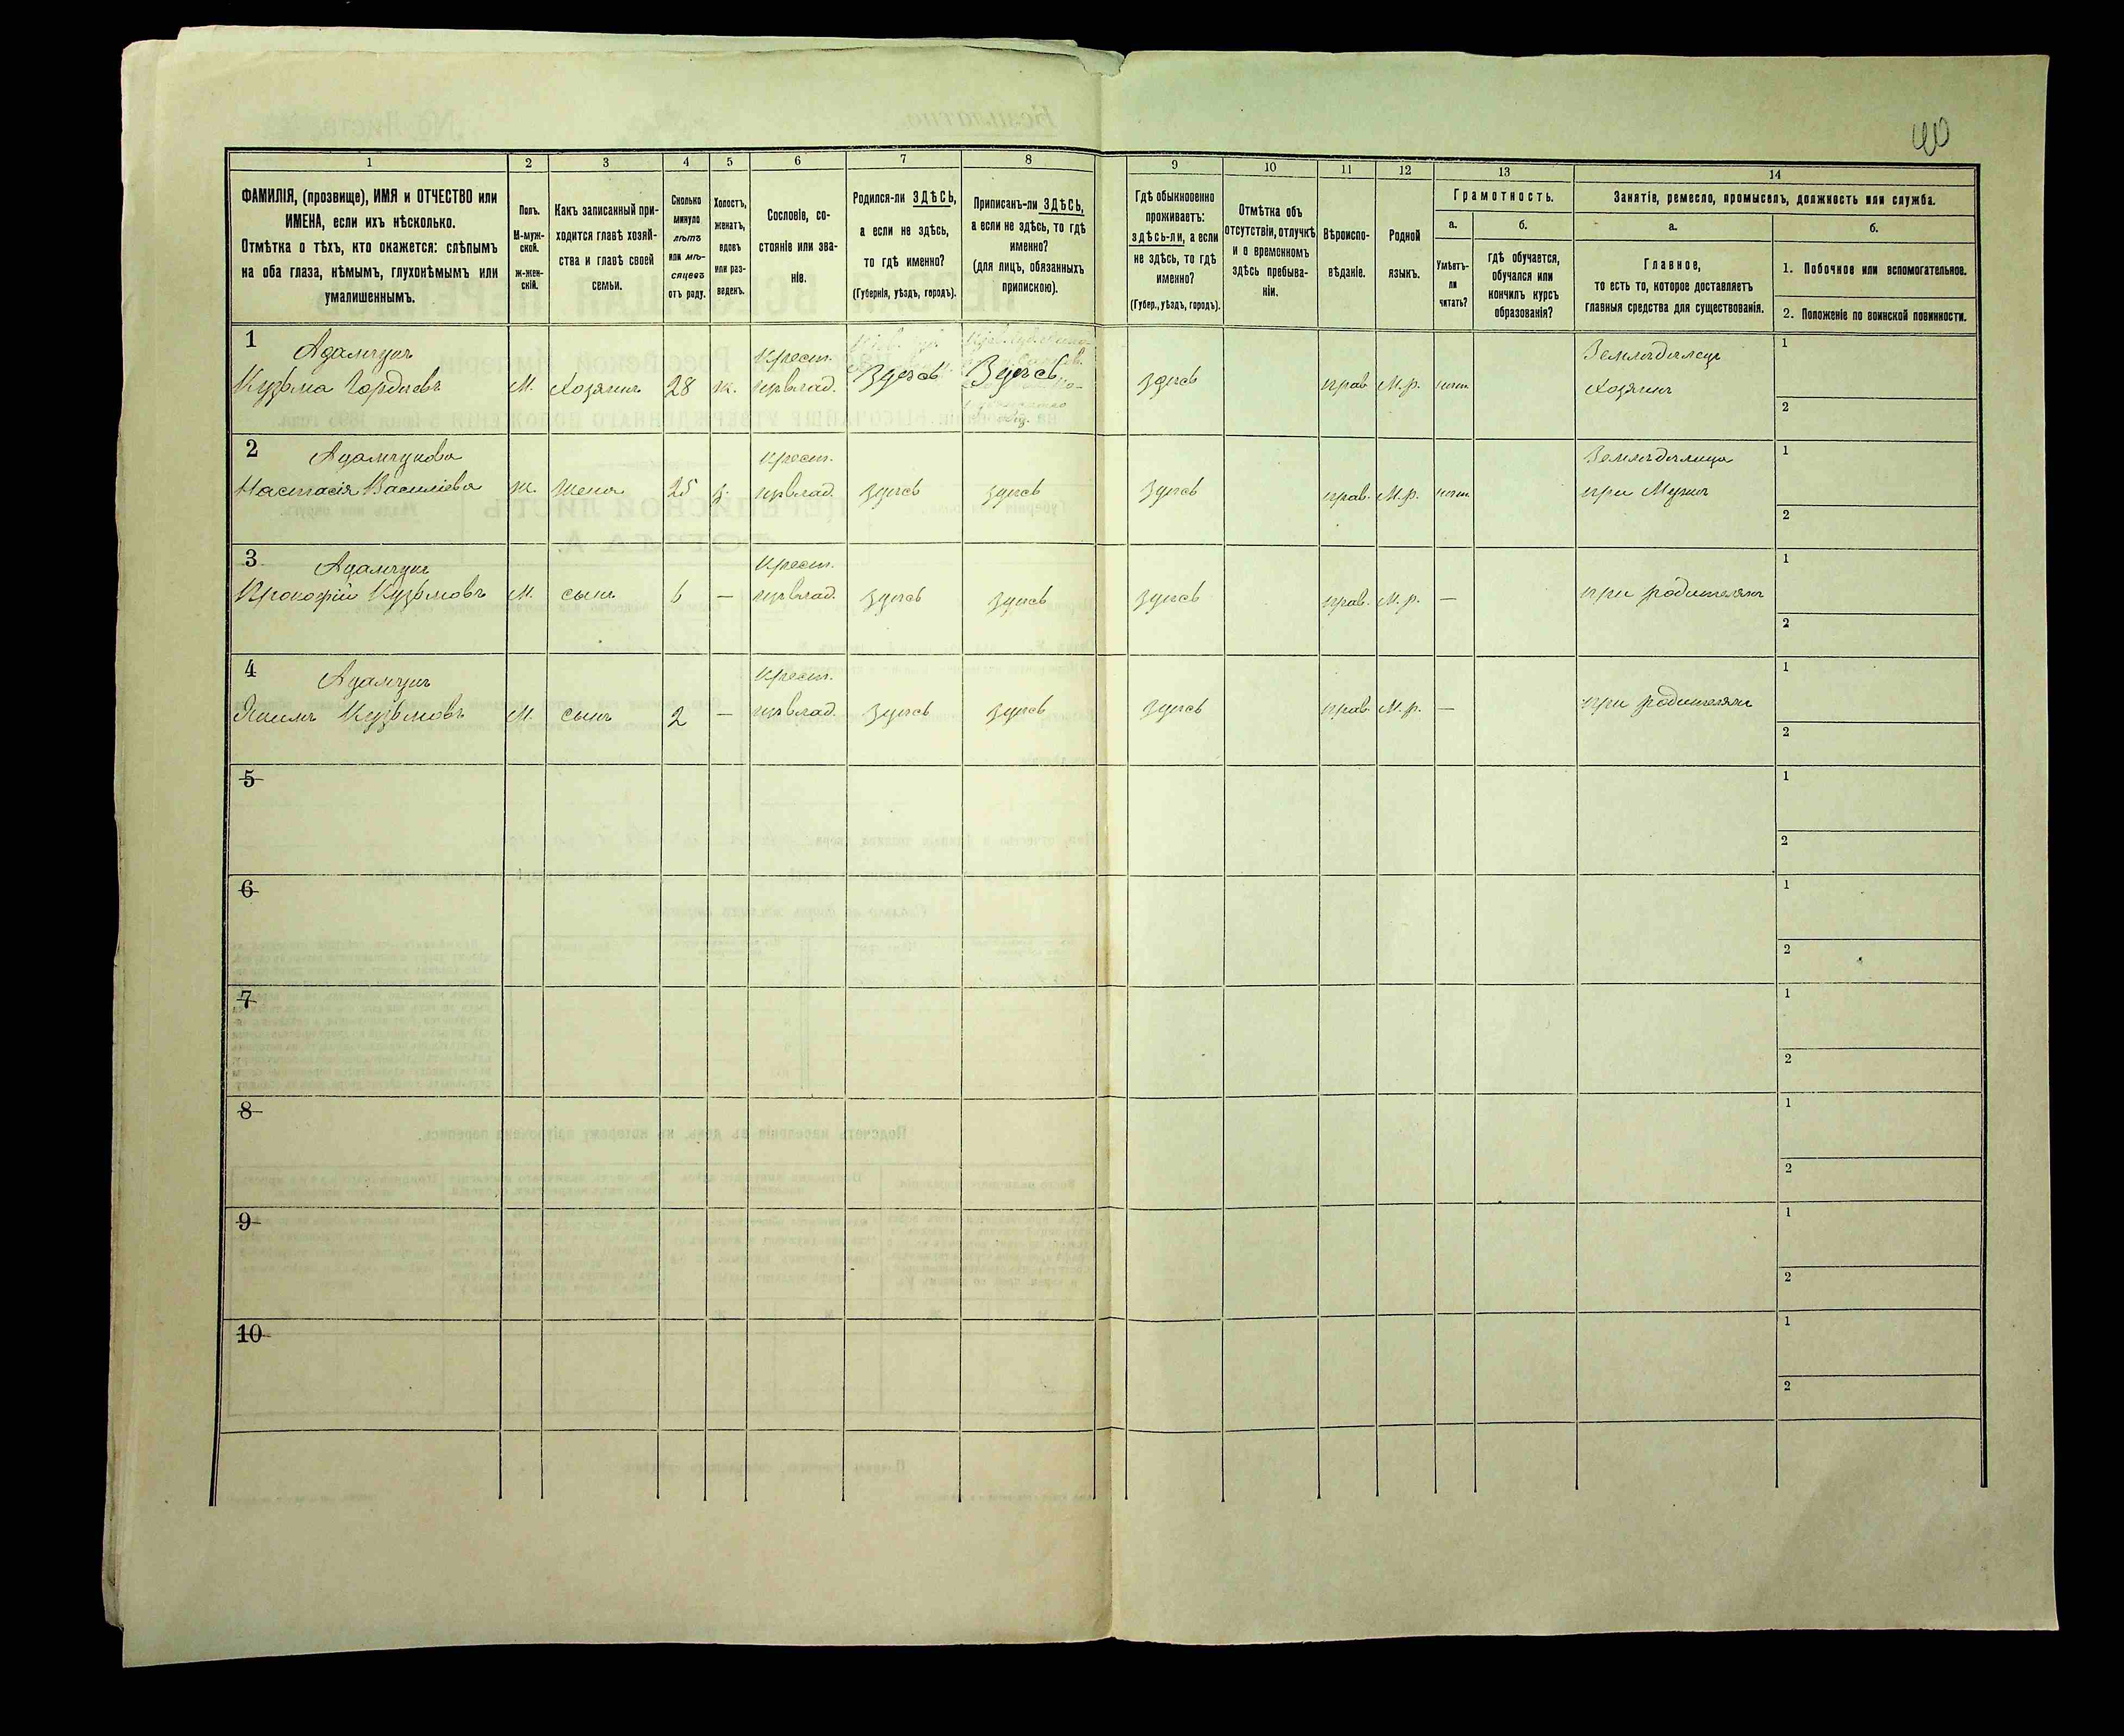 40
1 2 3 4 5 6 7 8 9 10 11 12 13 14
ФАМИЛІЯ, (прозвище), ИМЯ и ОТЧЕСТВО или
ИМЕНА, если ихъ нѣсколько.
Отмѣтка о тѣхъ, кто окажется: слѣпымъ
на оба глаза, нѣмымъ, глухонѣмымъ или
умалишеннымъ.
Полъ.
М-муж-
ской.
ж-жен-
скій.
Какъ записанный при-
ходится главѣ хозяй-
ства и главѣ своей
семьи.
Сколько
минуло
лѣтъ
или мѣ-
сяцевъ
отъ роду.
Холостъ,
женатъ,
вдовъ
или раз-
веденъ.
Сословіе, со-
стояніе или зва-
ніе.
Родился-ли ЗДѢСЬ,
а если не здѣсь,
то гдѣ именно?
(Губернія, уѣздъ, городъ).
Приписанъ-ли ЗДѢСЬ,
а если не здѣсь, то гдѣ
именно?
(для лицъ, обязанныхъ
припискою).
Гдѣ обыкновенно
проживаетъ:
здѣсь-ли, а если
не здѣсь, то гдѣ
именно?
(Губер., уѣздъ, городъ).
Отмѣтка объ
отсутствіи, отлучкѣ
и о временномъ
здѣсь пребыва-
ніи.
Вѣроиспо-
вѣданіе.
Родной
языкъ.
Грамотность.
а.
Умѣетъ-
ли
читать?
б.
гдѣ обучается,
обучался или
кончилъ курсъ
образованія?
Занятіе, ремесло, промыселъ, должность или служба.
а.
Главное,
то есть то, которое доставляетъ
главныя средства для существованія.
б.
1. Побочное или вспомогательное.
2. Положеніе по воинской повинности.
1 Адамчукъ Крест. Земледѣлецъ 1
Кузьма Гордіевъ М. Хозяинъ 28 ж. Здѣсь Здѣсь здѣсь прав. М.р. Хозяинъ
2
2 Адамчукова Крест. Земледѣлица 1
Настасія Василіева Ж. Жена 25 з. здѣсь здѣсь здѣсь прав. М.р. при Мужѣ
2
3 Адамчукъ Крест. 1
Прокофій Кузьмовъ М. сынъ 6 — здѣсь здѣсь здѣсь прав. М.р. — при родителяхъ
2
4 Адамчукъ Крест. 1
Якимъ Кузьмовъ М. сынъ 2 — здѣсь здѣсь здѣсь прав. М.р. — при родителяхъ
2
5 1
2
6 1
2
7 1
2
8 1
2
9 1
2
10 1
2